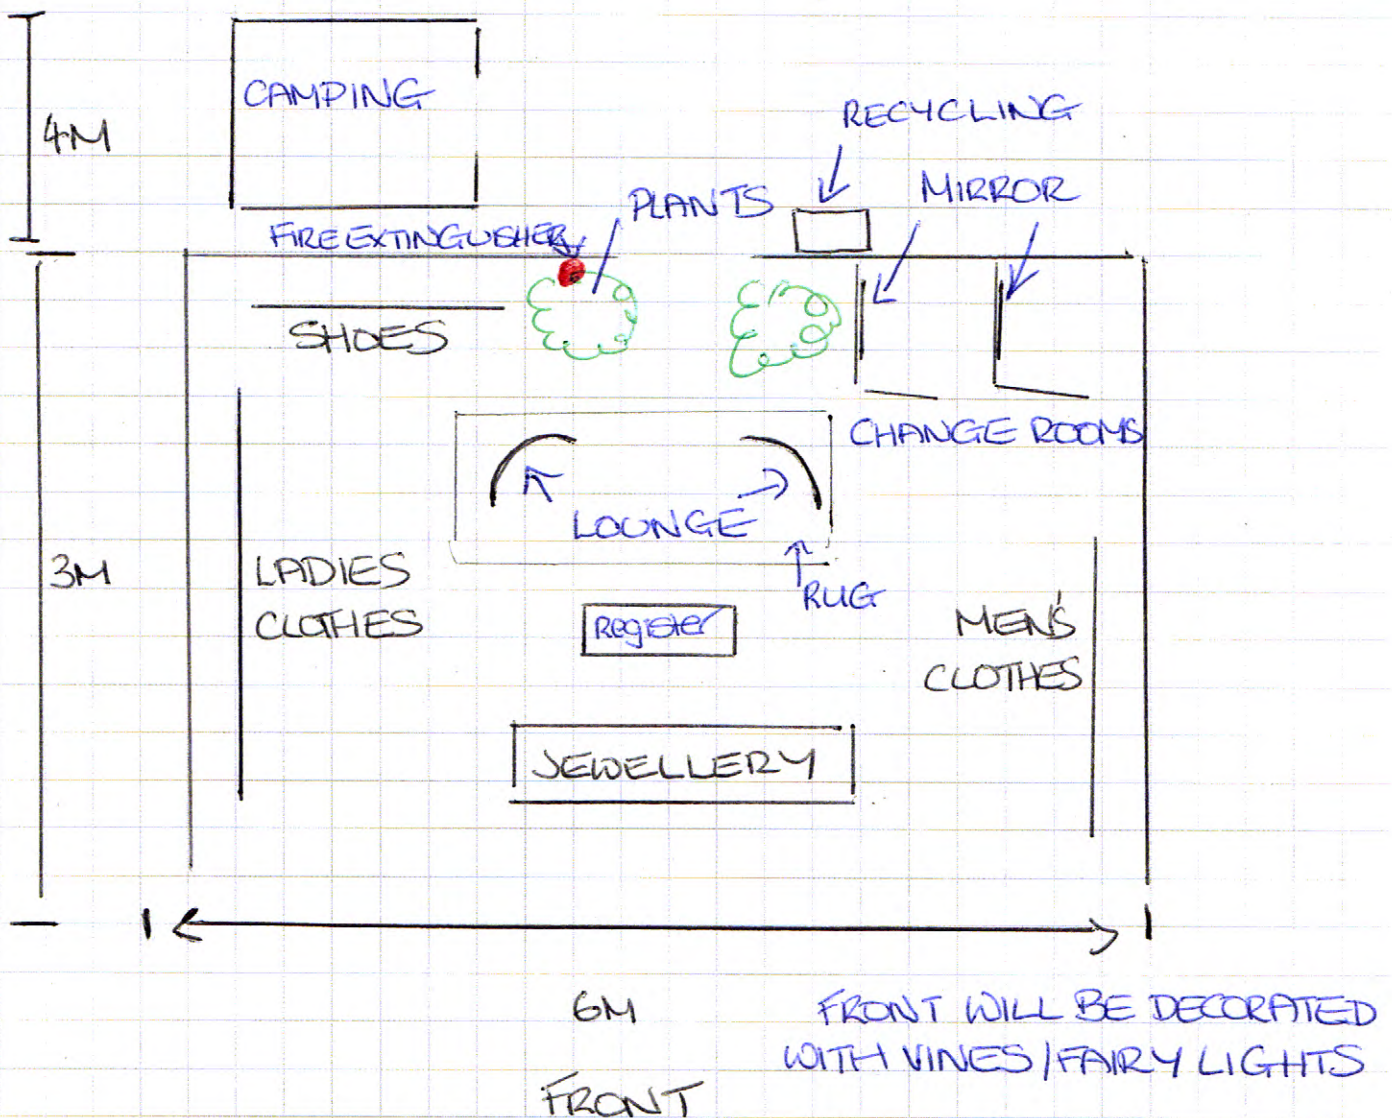 CAMPING
4M
RECYCLING
MIRROR
PLANTS
FIRE EXTINGUISHER
SHOES
CHANGE ROOMS
LOUNGE
3M
LADIES
CLOTHES
RUG
Register
MEN'S
CLOTHES
JEWELLERY
6M
FRONT WILL BE DECORATED
WITH VINES/FAIRY LIGHTS
FRONT